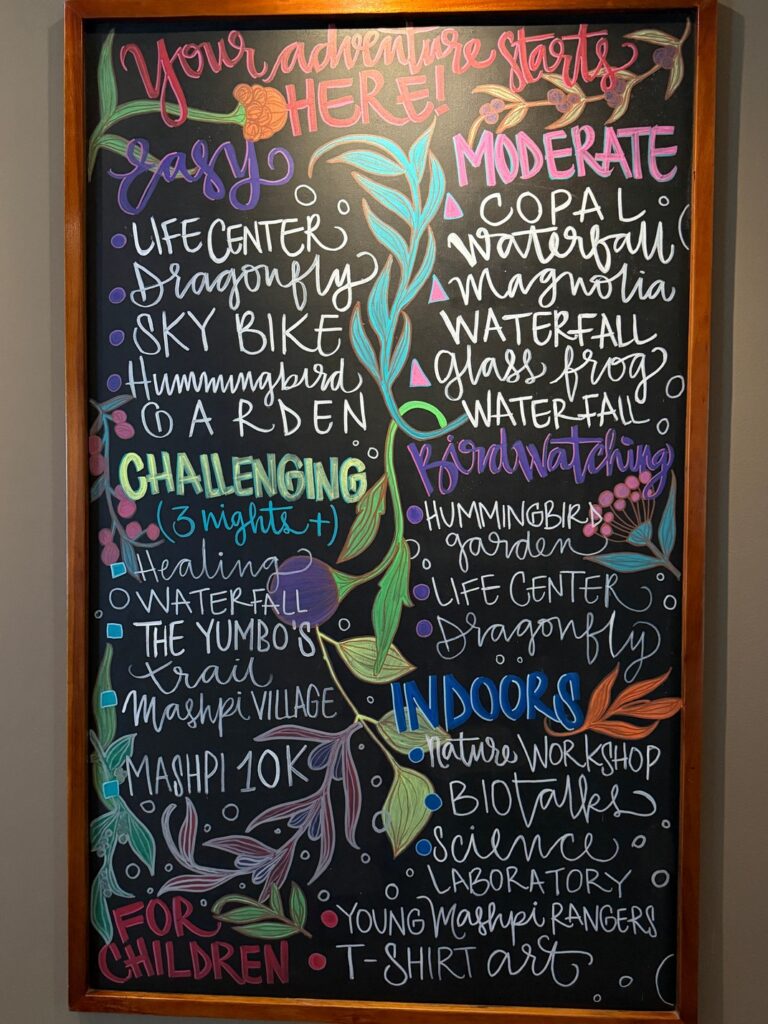 Your adventure starts
HERE!
easy
LIFE CENTER
Dragonfly
SKY BIKE
Hummingbird
GARDEN
CHALLENGING
(3 nights +)
Healing
WATERFALL
THE YUMBO'S
trail
Mashpi VILLAGE
MASHPI 10K
FOR
CHILDREN
YOUNG Mashpi RANGERS
T-SHIRT art
MODERATE
COPAL
waterfall
magnolia
WATERFALL
glass frog
WATERFALL
Birdwatching
HUMMINGBIRD
garden
LIFE CENTER
Dragonfly
INDOORS
nature WORKSHOP
BIOtalks
Science
LABORATORY